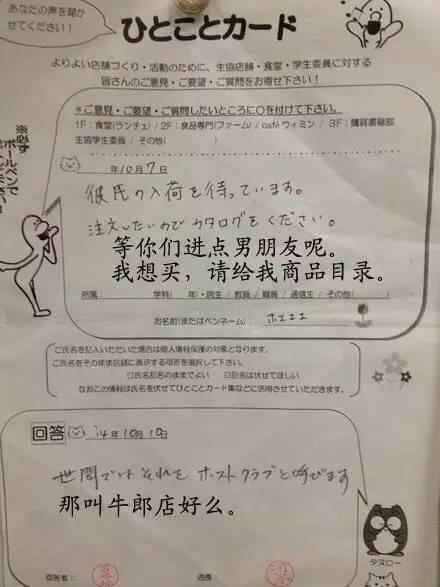 あなたの声を聞か
せてください！
ひとことカード
よりよい店舗づくり・活動のために、生協店舗・食堂・学生委員に対する
皆さんのご意見・ご要望・ご質問をお寄せ下さい！
※必ず
ボールペンで
＊ご意見・ご要望・ご質問したいところに○を付けて下さい。
1F：食堂(ランチェ) / 2F：食品専門(ファーム) / caféウィミン / 3F：購買書籍部
生協学生委員 / その他( )
年10月7日
彼氏の入荷を待っています。
注文したいのでカタログをください。
等你们进点男朋友呢。
我想买，请给我商品目录。
所属： 学科( 年)・院生 / 教員 / 職員 / 通信生 / その他( )
お名前(またはペンネーム)： ホエエエ
ご氏名を記入いただいた場合は個人情報保護の対象となります。
ご氏名をそのまま店頭に表示する可否を選択して下さい。
□氏名記名のままでよい □記名は伏せてほしい
なおこの情報は氏名を伏せてひとことカード集などに活用させていただきます。
回答 '14年10月10日
世間ではそれをホストクラブと呼びます
那叫牛郎店好么。
タヌロー
回答者： 店長：